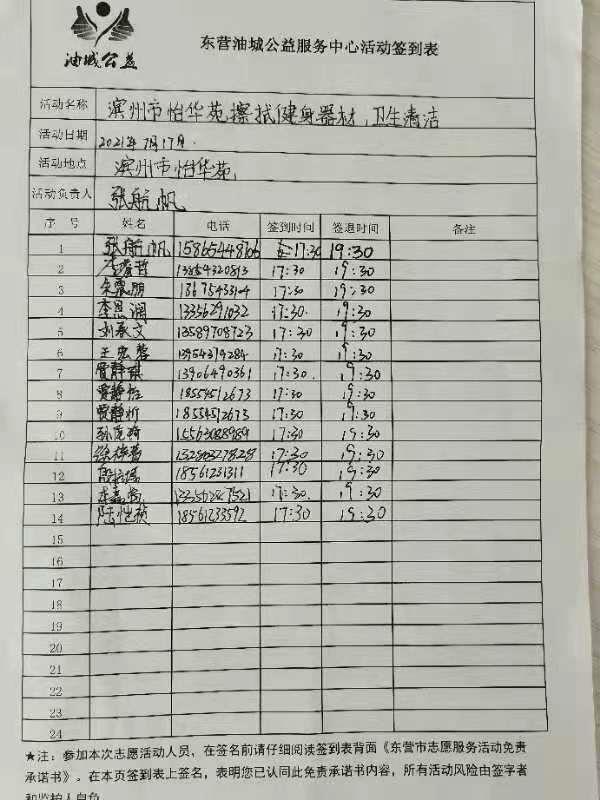 油城公益
东营油城公益服务中心活动签到表
活动名称 滨州市怡华苑擦拭健身器材,卫生清洁
活动日期 2021年7月17日
活动地点 滨州市怡华苑
活动负责人 张航帆
序 号 姓名 电话 签到时间 签退时间 备注
1 张航帆 17:30 19:30
2 13854320813 17:30 19:30
3 17:30 19:30
4 李思润 13356291032 17:30 19:30
5 刘泰文 13589708723 17:30 19:30
6 王宏蓉 13954379284 17:30 19:30
7 贾静琪 13906490361 17:30 19:30
8 贾静 18554512673 17:30 19:30
9 贾静 18554512673 17:30 19:30
10 15563088989 17:30 19:30
11 17:30 19:30
12 18561231311 17:30 19:30
13 17:30 19:30
14 陆恺祯 18561233592 17:30 19:30
15
16
17
18
19
20
21
22
23
24
★注：参加本次志愿活动人员，在签名前请仔细阅读签到表背面《东营市志愿服务活动免责
承诺书》。在本页签到表上签名，表明您已认同此免责承诺书内容，所有活动风险由签字者
和监护人自负